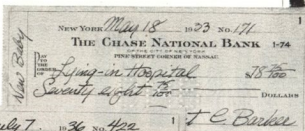 New York May 18 1923 No. 171
The Chase National Bank 1-74
of the City of New York
Pine Street Corner of Nassau
New Baby
Pay to the order of Lying-in Hospital $78 00/100
Seventy eight 00/100 Dollars
J C Barber
July 7 1936 No. 422 1